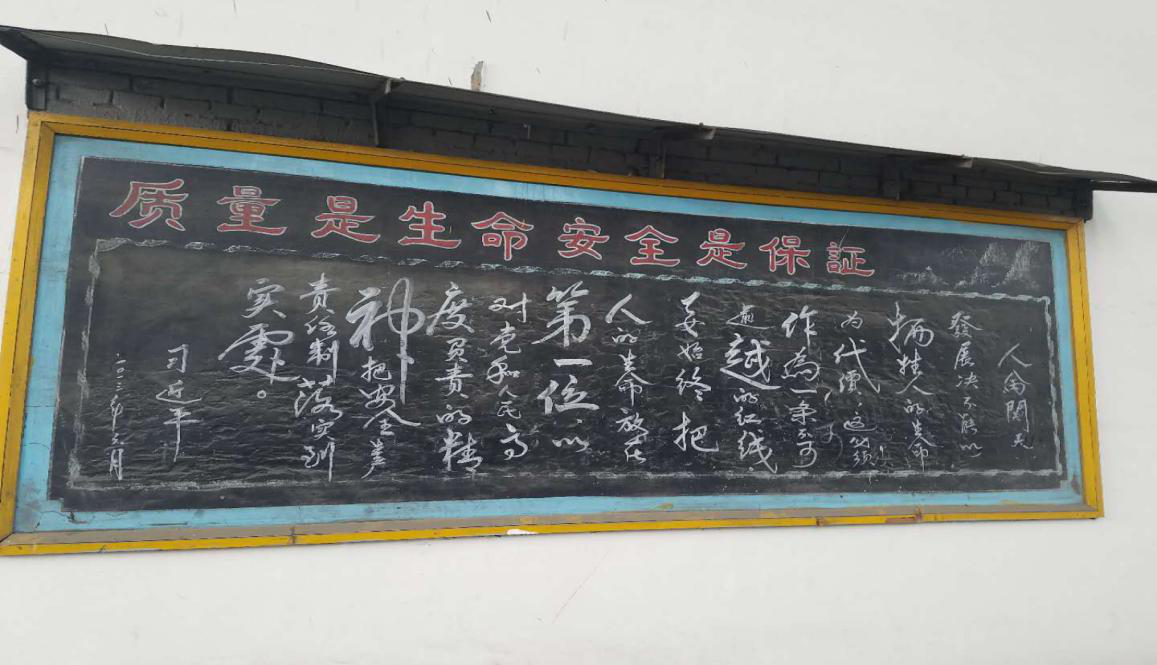 质量是生命安全是保証
人命関天
發展决不能以
牺牲人的生命
为代價,这必须
作為一条不可
逾越的红线
要始終把
人的生命放在
第一位,以
对党和人民高
度负责的精
神把安全生产
责任制落实到
实處。
习近平
二〇一三年六月